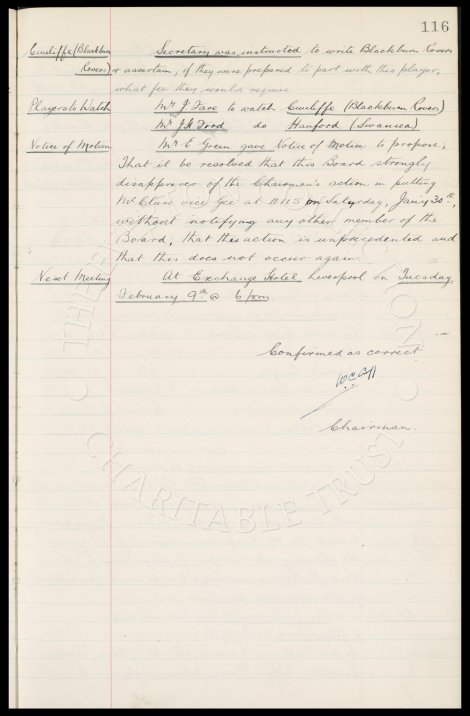 116
Cunliffe (Blackburn Secretary was instructed to write Blackburn Rovers
Rovers) & ascertain, if they were prepared to part with this player,
what fee they would require
Players to Watch Mr J. Fare to watch Cunliffe (Blackburn Rovers)
Mr J H Ford do Hanford (Swansea)
Notice of Motion Mr E Green gave Notice of Motion to propose;
That it be resolved that this Board strongly
disapproves of the Chairman's action in putting
McClure vice Gee at 11.45 on Saturday, Jan'y 30th,
without notifying any other member of the
Board, that this action is unprecedented and
that this does not occur again.
Next Meeting At Exchange Hotel, Liverpool on Tuesday
February 9th @ 6 pm
Confirmed as correct
W C Cuff
Chairman.
CHARITABLE TRUST